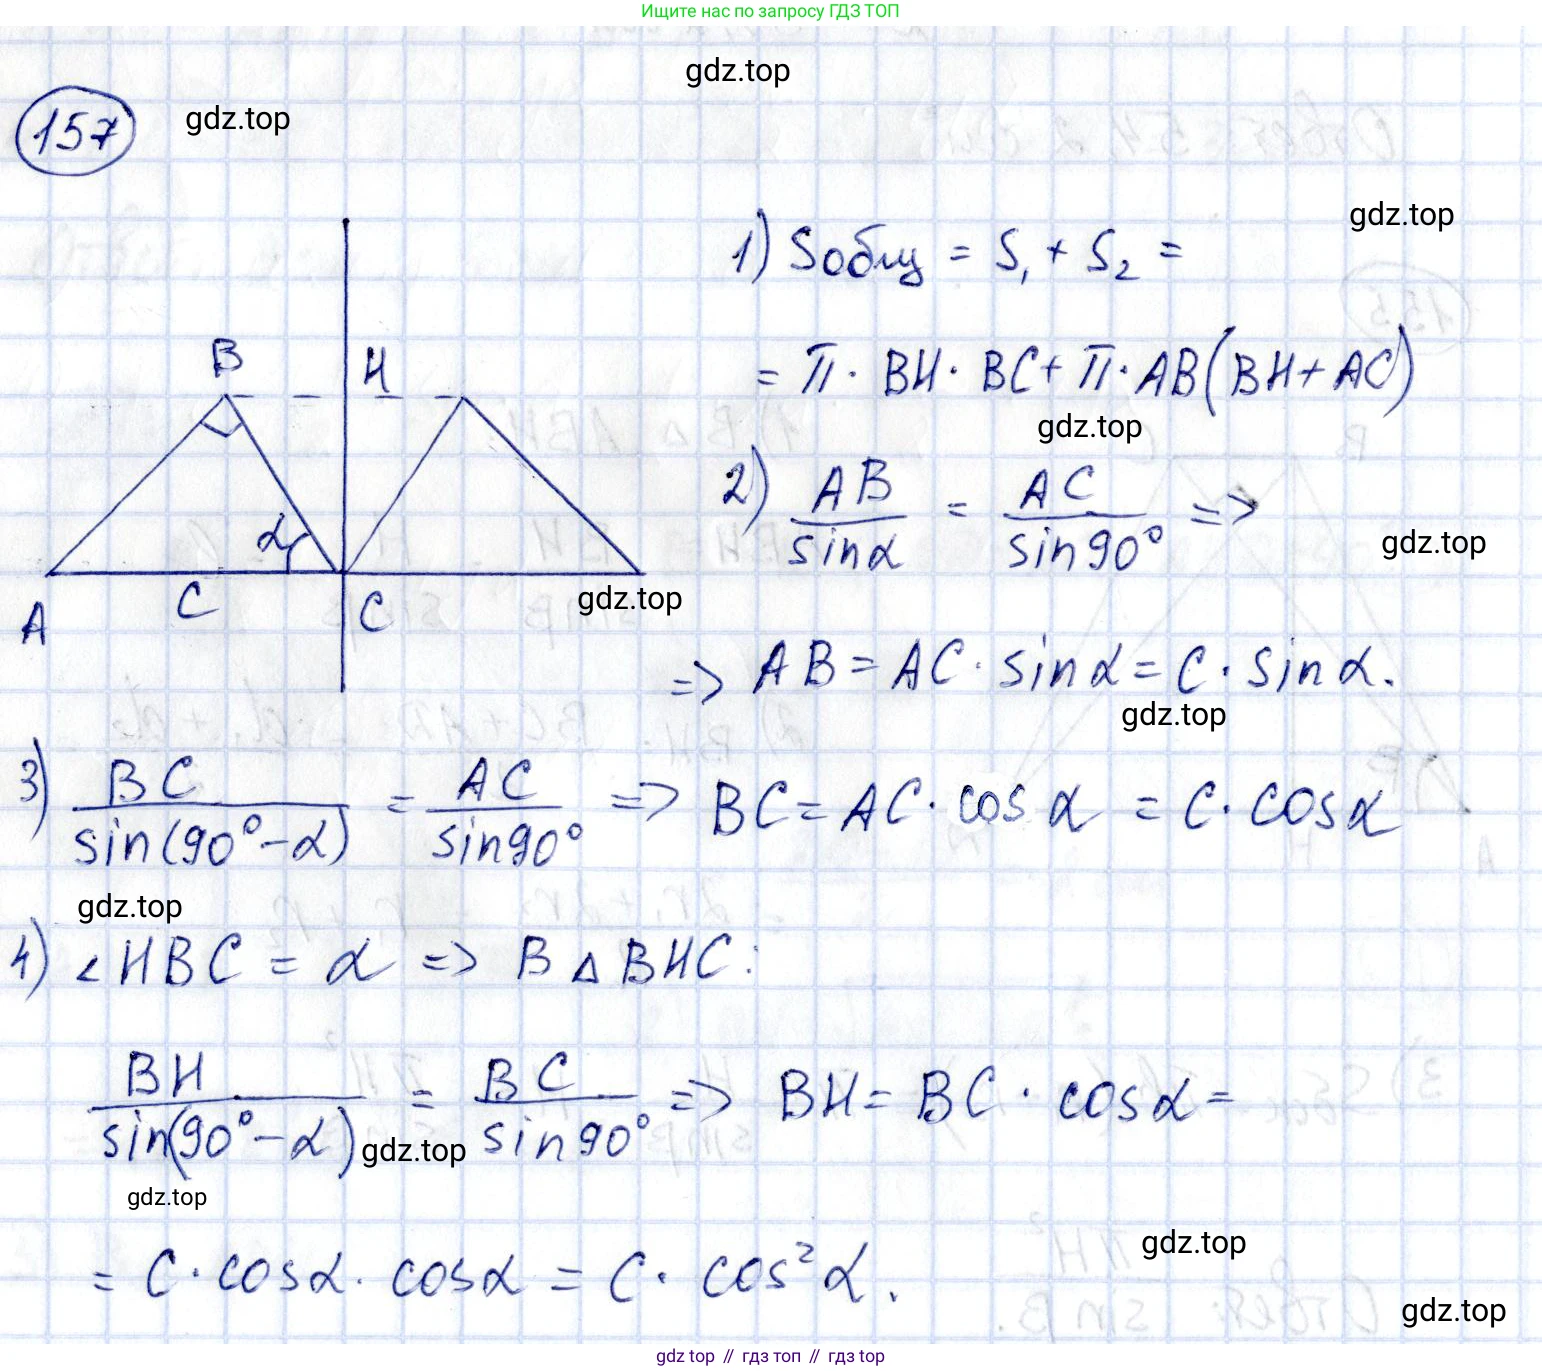 Ищите нас по запросу ГДЗ ТОП
gdz.top
157
gdz.top
gdz.top
1) Sобщ = S₁ + S₂ =
B H
= π · BH · BC + π · AB(BH + AC)
gdz.top
2) AB/sinα = AC/sin90° =>
α
gdz.top
gdz.top
A C C
=> AB = AC · sinα = C · sinα.
gdz.top
3) BC/sin(90°-α) = AC/sin90° => BC = AC · cosα = C · cosα
gdz.top
4) ∠HBC = α => В △BHC:
BH/sin(90°-α) = BC/sin90° => BH = BC · cosα =
gdz.top
gdz.top
= C · cosα · cosα = C · cos²α.
gdz.top
gdz.top
gdz top // гдз топ // gdz top